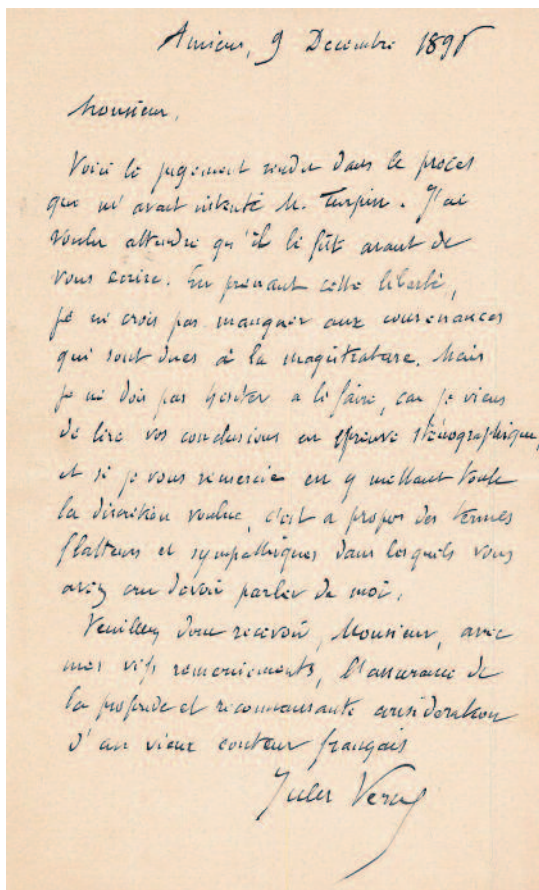 Amiens, 9 Decembre 1896
Monsieur,
Voici le jugement rendu dans le procès
que m'avait intenté M. Turpin. J'ai
voulu attendre qu'il le fût avant de
vous écrire. En prenant cette liberté,
je ne crois pas manquer aux convenances
qui sont dues à la magistrature. Mais
je ne dois pas hésiter a le faire, car je viens
de lire vos conclusions en épreuve sténographique,
et si je vous remercie en y mettant toute
la discrétion voulue, c'est a propos des termes
flatteurs et sympathiques dans lesquels vous
avez cru devoir parler de moi.
Veuillez donc recevoir, Monsieur, avec
mes vifs remerciements, l'assurance de
la profonde et reconnaissante considération
d'un vieux conteur français
Jules Verne